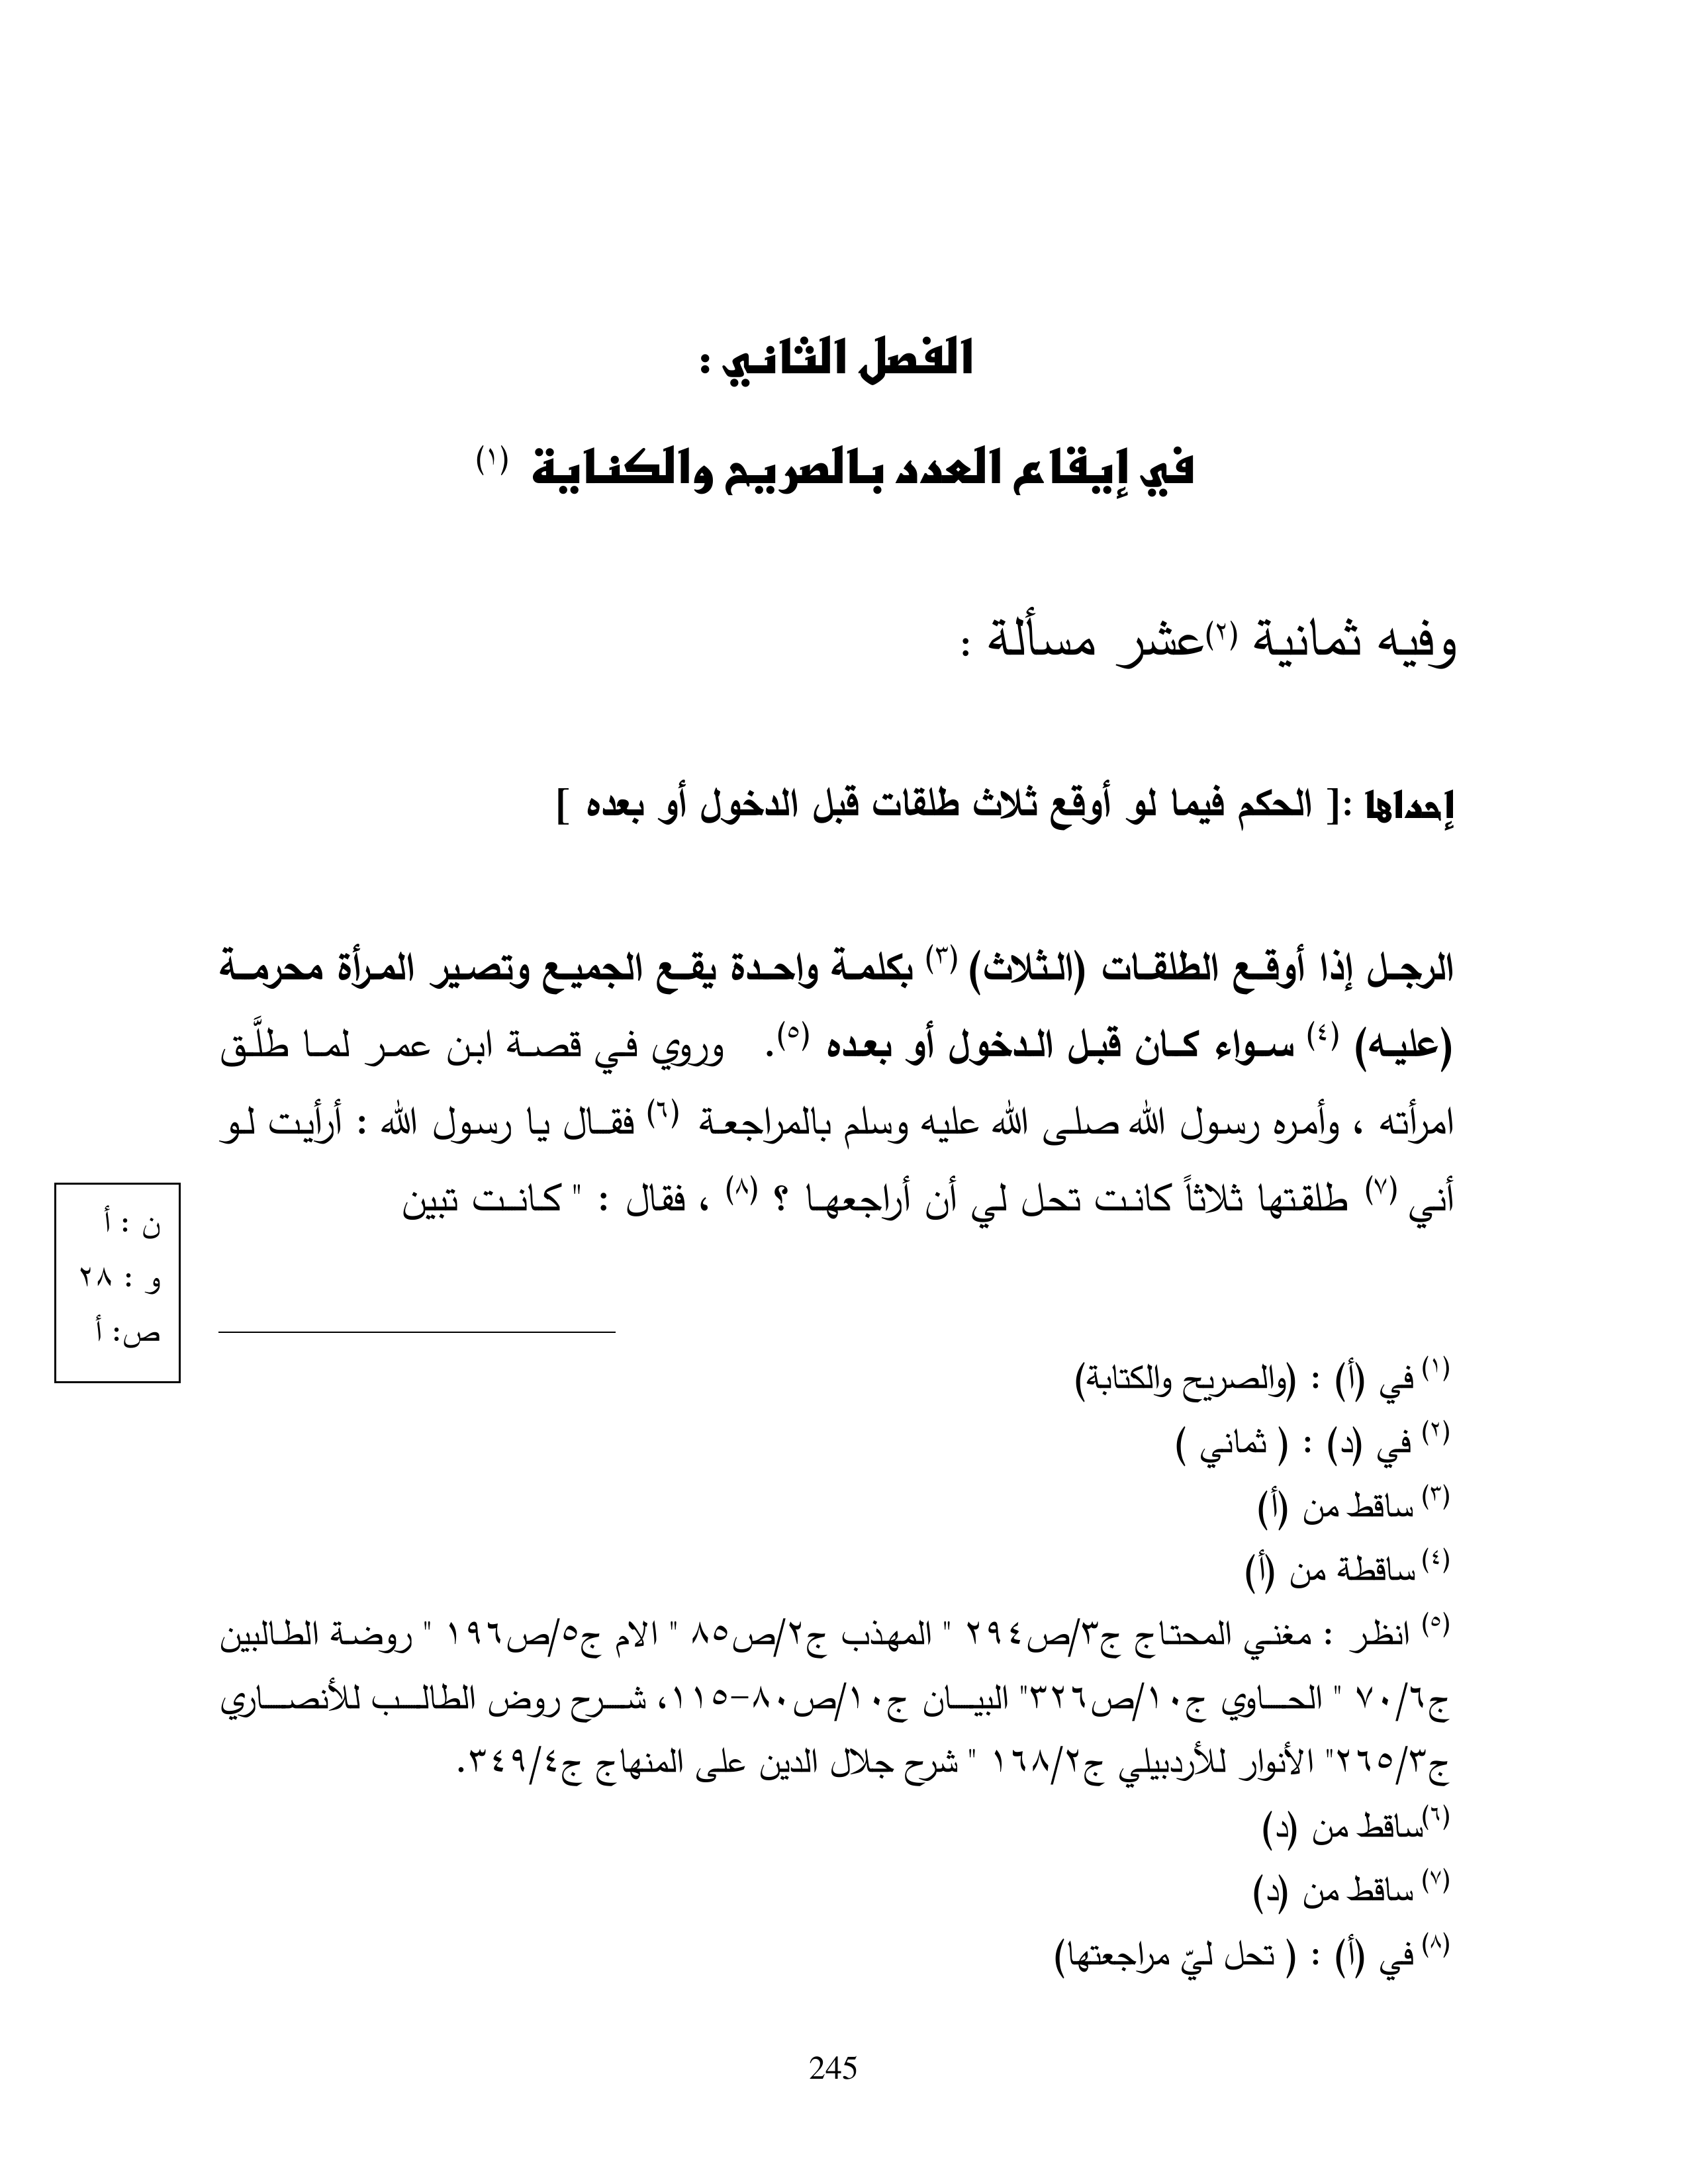 الفصل الثاني :
في إيقاع العدد بالصريح والكناية (١)
وفيه ثمانية (٢)عشر مسألة :
إحداها :[ الحكم فيما لو أوقع ثلاث طلقات قبل الدخول أو بعده ]
الرجل إذا أوقع الطلقات (الثلاث) (٣) بكلمة واحدة يقع الجميع وتصير المرأة محرمة
(عليه) (٤) سواء كان قبل الدخول أو بعده (٥). وروي في قصة ابن عمر لما طلَّق
امرأته ، وأمره رسول الله صلى الله عليه وسلم بالمراجعة (٦) فقال يا رسول الله : أرأيت لو
أني (٧) طلقتها ثلاثاً كانت تحل لي أن أراجعها ؟ (٨) ، فقال : " كانت تبين
ن : أ
و : ٢٨
ص: أ
(١) في (أ) : (والصريح والكتابة)
(٢) في (د) : ( ثماني )
(٣) ساقط من (أ)
(٤) ساقطة من (أ)
(٥) انظر : مغني المحتاج ج٣/ص٢٩٤ " المهذب ج٢/ص٨٥ " الام ج٥/ص١٩٦ " روضة الطالبين
ج٧٠/٦ " الحاوي ج١٠/ص٣٢٦" البيان ج١٠/ص٨٠-١١٥، شرح روض الطالب للأنصاري
ج٢٦٥/٣" الأنوار للأردبيلي ج١٦٨/٢ " شرح جلال الدين على المنهاج ج٣٤٩/٤.
(٦)ساقط من (د)
(٧) ساقط من (د)
(٨) في (أ) : ( تحل ليّ مراجعتها)
245